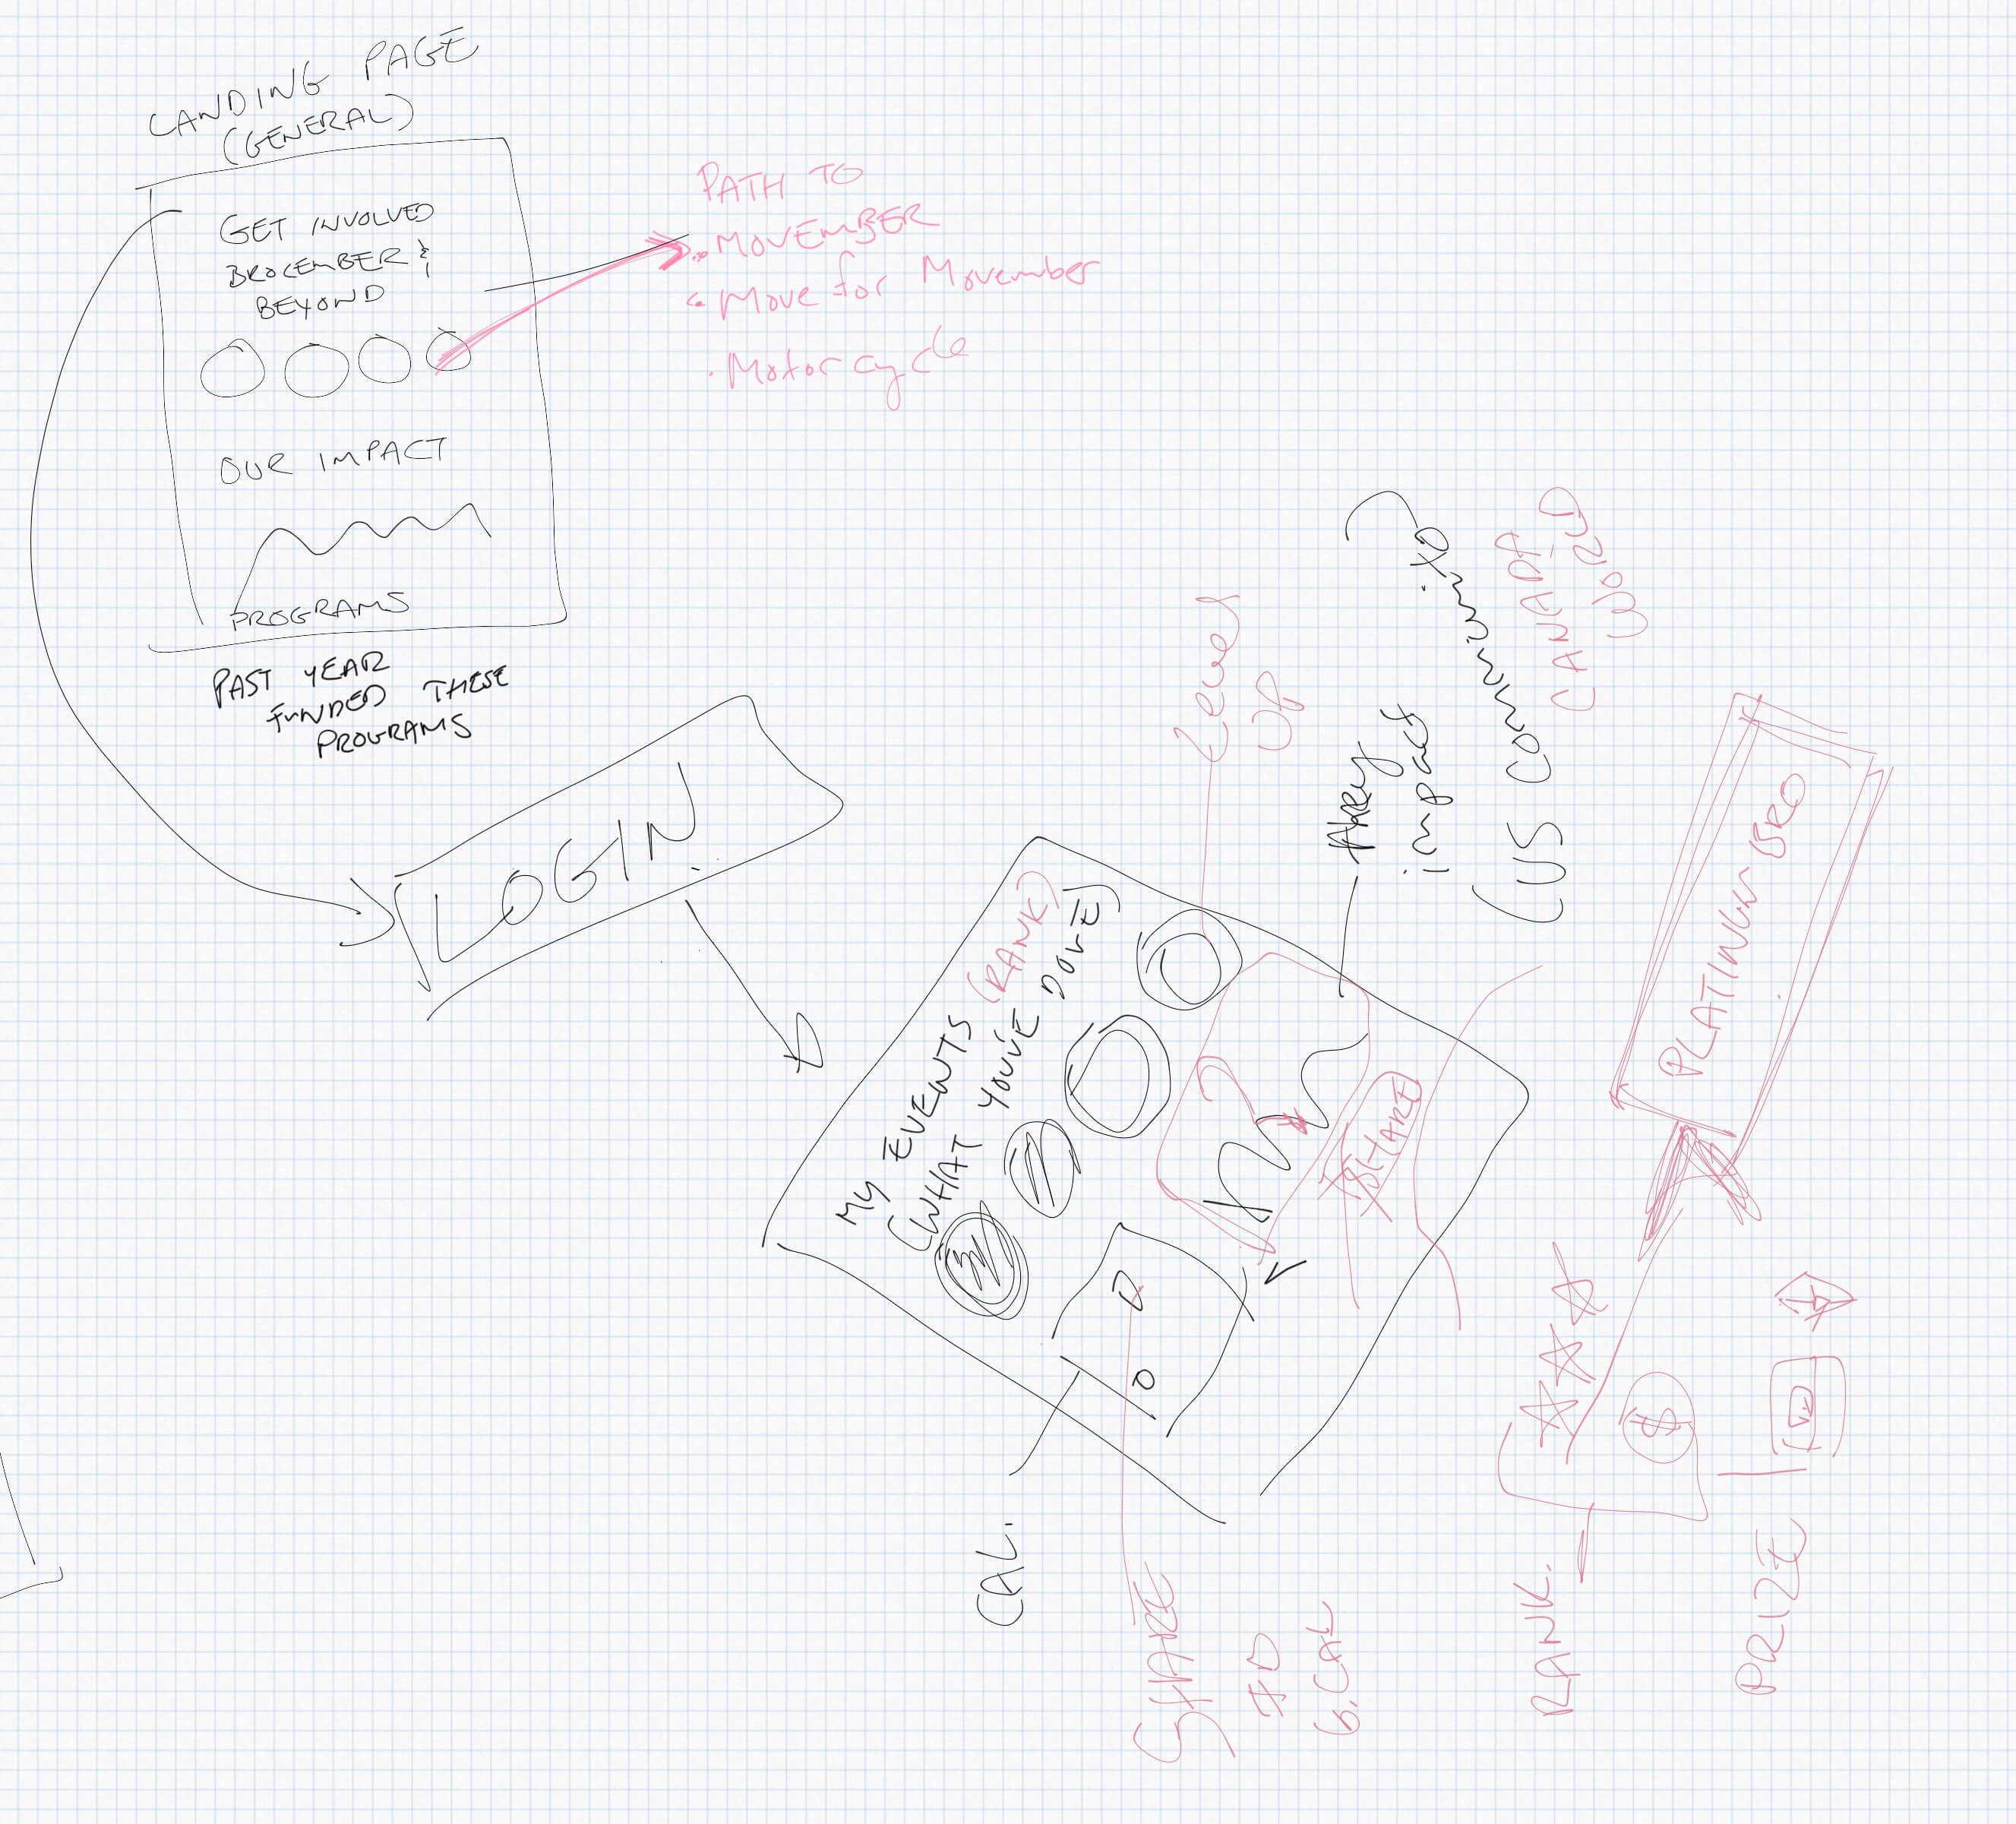 LANDING PAGE
(GENERAL)
GET INVOLVED
BROCEMBER &
BEYOND
OUR IMPACT
PROGRAMS
PAST YEAR
FUNDED THESE
PROGRAMS
PATH TO
• MOVEMBER
• Move for Movember
• Motorcycle
LOGIN
MY EVENTS (RANK)
(WHAT YOU'VE DONE)
Level
UP
impact
(US Community)
CANADA
WORLD
SHARE
CAL.
SHARE
TO
G.CAL
PLATINUM BRO
$
RANK.
PRIZE